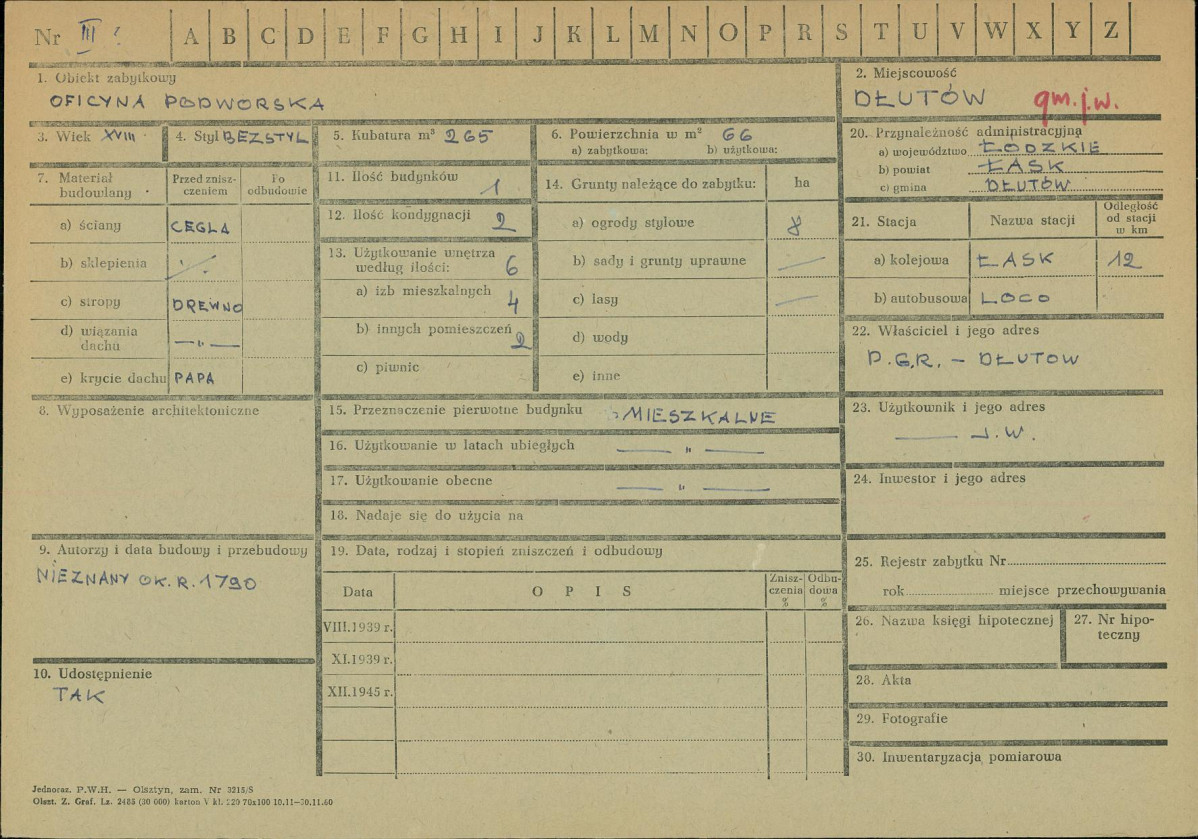 Nr III ?
A B C D E F G H I J K L M N O P R S T U V W X Y Z
1. Obiekt zabytkowy
OFICYNA PODWORSKA
2. Miejscowość
DŁUTÓW gm.j.w.
3. Wiek XVIII
4. Styl BEZSTYL
5. Kubatura m³ 265
6. Powierzchnia w m² 66
a) zabytkowa: b) użytkowa:
20. Przynależność administracyjna
a) województwo ŁODZKIE
b) powiat ŁASK
c) gmina DŁUTÓW
7. Materiał budowlany
Przed zniszczeniem
Po odbudowie
a) ściany CEGLA
b) sklepienia
c) stropy DREWNO
d) wiązania dachu —„—
e) krycie dachu PAPA
11. Ilość budynków 1
12. Ilość kondygnacji 2
13. Użytkowanie wnętrza według ilości: 6
a) izb mieszkalnych 4
b) innych pomieszczeń 2
c) piwnic
14. Grunty należące do zabytku: ha
a) ogrody stylowe 8
b) sady i grunty uprawne —
c) lasy —
d) wody
e) inne
21. Stacja
Nazwa stacji
Odległość od stacji w km
a) kolejowa ŁASK 12
b) autobusowa LOCO
22. Właściciel i jego adres
P.G.R. – DŁUTOW
8. Wyposażenie architektoniczne
15. Przeznaczenie pierwotne budynku MIESZKALNE
16. Użytkowanie w latach ubiegłych — „ —
17. Użytkowanie obecne — „ —
18. Nadaje się do użycia na
23. Użytkownik i jego adres
— J.W.
24. Inwestor i jego adres
9. Autorzy i data budowy i przebudowy
NIEZNANY OK. R. 1790
19. Data, rodzaj i stopień zniszczeń i odbudowy
Data
OPIS
Zniszczenia %
Odbudowa %
VIII.1939 r.
XI.1939 r.
XII.1945 r.
25. Rejestr zabytku Nr
rok miejsce przechowywania
26. Nazwa księgi hipotecznej
27. Nr hipoteczny
10. Udostępnienie
TAK
28. Akta
29. Fotografie
30. Inwentaryzacja pomiarowa
Jednoraz. P.W.H. — Olsztyn, zam. Nr 3215/S
Olszt. Z. Graf. Lz. 2485 (30 000) karton V kl. 220 70x100 10.11—30.11.60